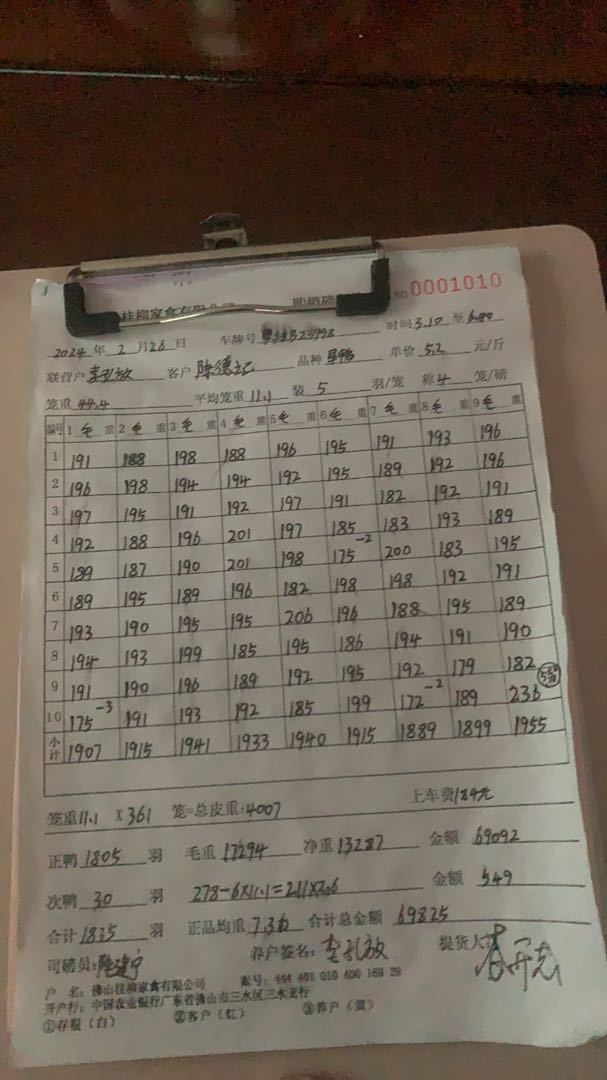 桂柳家禽有限公司 NO 0001010
2024 年 2 月 26 日 车牌号 时间 3.10 至 6.40
联营户 李孔放 客户 陈德记 品种 单价 5.2 元/斤
笼重 44.4 平均笼重 11.1 装 5 羽/笼 称 4 笼/磅
编号 1 毛重 2 毛重 3 毛重 4 毛重 5 毛重 6 毛重 7 毛重 8 毛重 9 毛重
1 191 188 198 188 196 195 191 193 196
2 196 198 194 194 192 195 189 192 196
3 197 195 191 192 197 191 182 192 191
4 192 188 196 201 197 185 183 193 189
5 189 187 190 201 198 175-2 200 183 195
6 189 195 189 196 182 198 198 192 191
7 193 190 195 195 206 196 188 195 189
8 194 193 199 185 195 186 194 191 190
9 191 190 196 189 192 195 192 179 182
10 175-3 191 193 192 185 199 172-2 189 236
小计 1907 1915 1941 1933 1940 1915 1889 1899 1955
笼重 11.1 X 361 笼=总皮重: 4007 上车费 184元
正鸭 1805 羽 毛重 17294 净重 13287 金额 69092
次鸭 30 羽 278-6X11.1=211X2.6 金额 549
合计 1835 羽 正品均重 7.36 合计总金额 69825
司磅员: 陈建宁 养户签名: 李孔放 提货人:
户 名: 佛山桂柳家禽有限公司 账号: 444 601 010 400 169 29
开户行: 中国农业银行广东省佛山市三水区三水支行
①存根（白） ②客户（红） ③养户（黄）